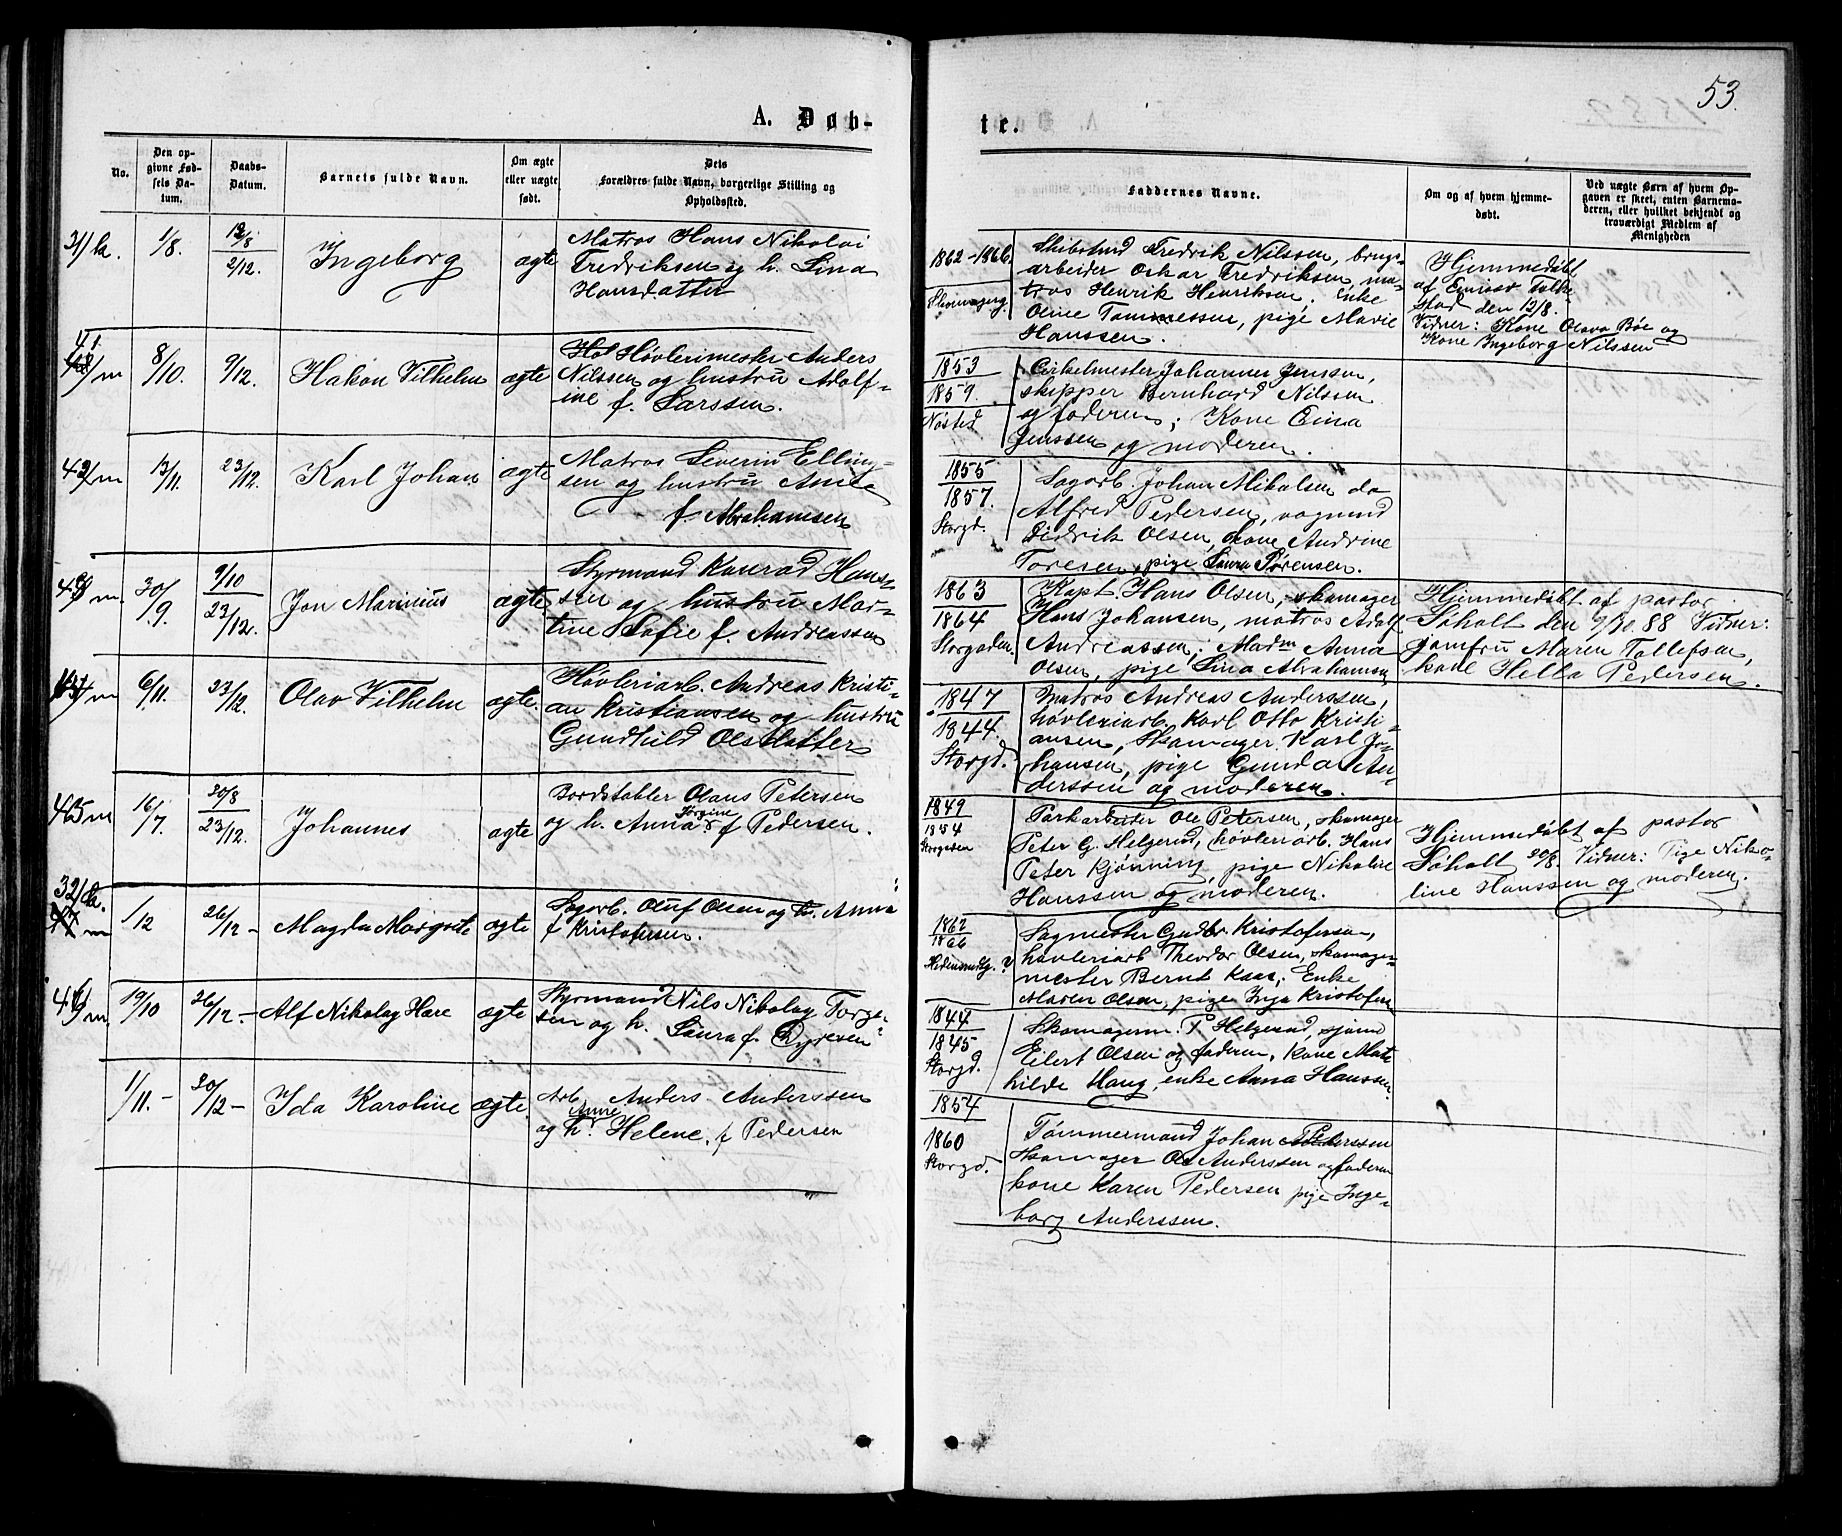 53.
A. Døb-
te.
No.
Den op-
givne Fød-
sels Da-
tum.
Daabs-
Datum.
Barnets fulde Navn.
Om ægte
eller uægte
født.
Dets
Forældres fulde Navn, borgerlige Stilling og
Opholdssted.
Faddernes Navne.
Om og af hvem hjemme-
døbt.
Ved uægte Børn af hvem Op-
gaven er skeet, enten Barnemo-
deren, eller hvilket bekjendt og
troværdigt Medlem af
Menigheden
31/k.
1/8.
12/8
2/12.
Ingeborg
ægte
Matros Hans Nikolai
Fredriksen og h. Lina
Hansdatter
1862-1866.
Skomagerg.
Skibstmd Fredrik Nilssen, brugs-
arbeider Oskar Fredriksen, ma-
tros Henrik Henriksen. Enke
Oline Tommessen, pige Marie
Hanssen.
Hjemmedøbt
den 12/8.
Vidner: Kone Olava Bøe og
Kone Ingeborg Nilssen
41.
/m
8/10.
9/12.
Hakon Vilhelm
ægte
Høvlerimester Anders
Nilssen og hustru Adolf-
ine f. Larssen.
1853
1859.
Nøsted
Cirkelmester Johannes Jenssen,
skipper Bernhard Nilssen
og faderen; Kone Eina
Jenssen og moderen.
42/m
13/11.
23/12.
Karl Johan
ægte
Matros Severin Elling-
sen og hustru Anne
f. Abrahamsen
1855
1857.
Storgd.
Sagarb. Johan Mikalsen do
Alfred Pedersen, vognmd
Didrik Olsen, kone Andrine
Toresen, pige Laura Sørensen.
43 m.
30/9.
9/10
23/12.
Jon Marinius
ægte
Styrmand Konrad Hans-
sen og hustru Mar-
tine Sofie f. Andreassen
1863
1864
Storgaden.
Kapt. Hans Olsen, skomager
Hans Johansen, matros Adolf
Andreassen; Madm Anna
Olsen, pige Lina Abrahamsen
Hjemmedøbt af pastor
Søholt den 9/10.88 Vidner:
jomfru Maren Tollefsen,
kone Hella Pedersen.
44/m
6/11.
23/12.
Olav Vilhelm
ægte.
Høvleriarb. Andreas Kristi-
an Kristiansen og hustru
Gundhild Olsdatter
1847
1844.
Storgd.
Matros Andreas Anderssen,
høvleriarb. Karl Otto Kristi-
ansen, Skomager Karl Jo-
hansen, pige Gunda An-
derssen og moderen.
45 m
16/7.
20/8
23/12.
Johannes
ægte
Bordstabler Olaus Petersen
og h. Anna Jørgine f Pedersen.
1849
1854
Storgaden
Parkarbeider Ole Petersen, skomager
Peter G. Helgerud, høvleriarb. Hans
Peter Kjønning, pige Nikoline
Hanssen og moderen.
Hjemmedøbt af pastor
Søholt 20/8. Vidner: Pige Niko-
line Hanssen og moderen.
32/k.
1/12
26/12-
Magda Margrete
ægte
Sagarb. Oluf Olsen og h. Anna
f Kristofersen.
1862
1866
Sagmester Gudbr. Kristofersen,
høvleriarb Theodor Olsen, skomager-
mester Bernt Kaas; Enke
Maren Olsen, pige Inga Kristofersen
46/m.
19/10
26/12.-
Alf Nikolay Hare
ægte
Styrmand Nils Nikolay Torge-
sen og h. Laura f. Dyresen
1844
1845
Storgd.
Skomagerm. P. Helgerud, sjømd
Eilert Olsen og faderen, Kone Mat-
hilde Haug, enke Anna Hanssen.
1/11.-
30/12-
Ida Karoline
ægte.
Arb. Anders Anderssen
og h. Anne Helene. f Pedersen
1854
1860
Storgd.
Tømmermand Johan Pederssen
Skomager Ole Anderssen og faderen
kone Karen Pedersen pige Inge-
borg Anderssen.